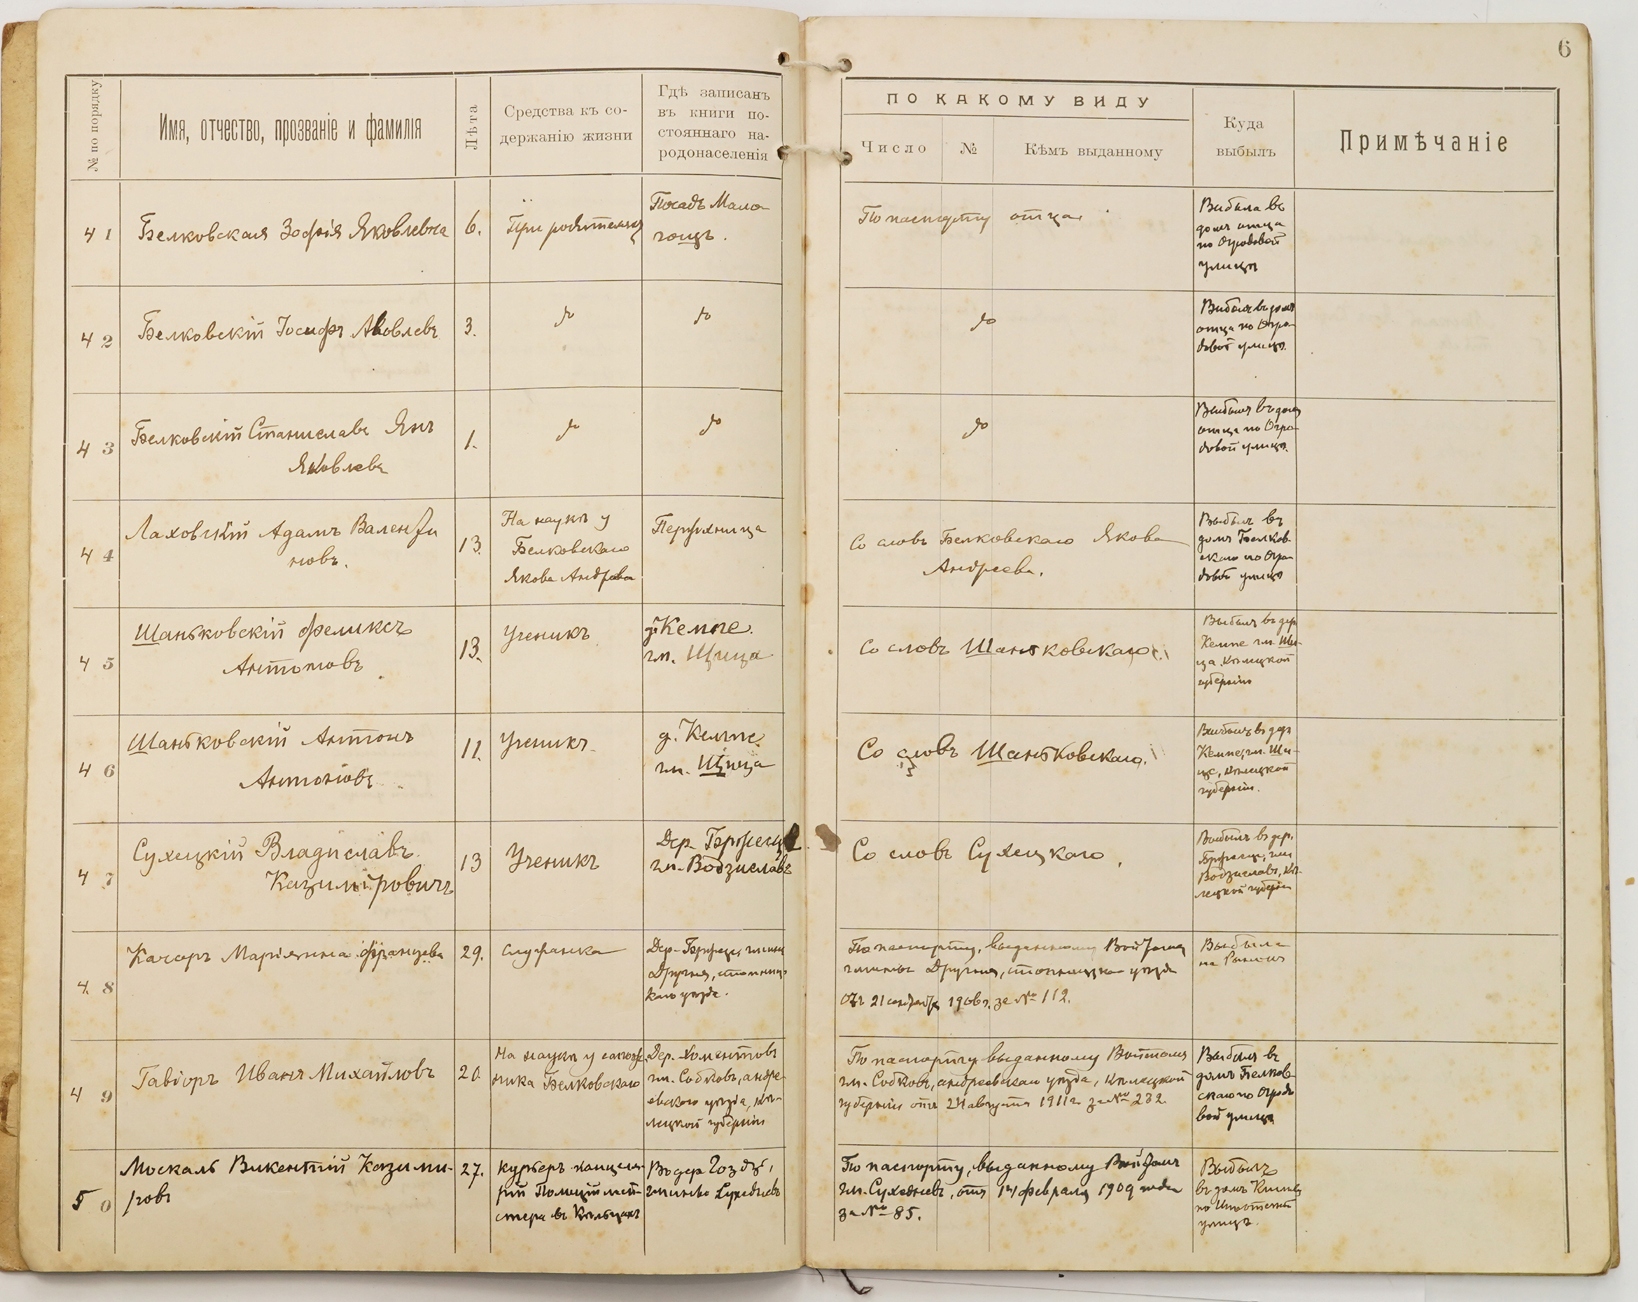 6
№ по порядку
Имя, отчество, прозваніе и фамилія
Лѣта
Средства къ со-
держанію жизни
Гдѣ записанъ
въ книги по-
стояннаго на-
родонаселенія
ПО КАКОМУ ВИДУ
Число
№
Кѣмъ выданному
Куда
выбылъ
Примѣчаніе
41
Белковская Зофія Яковлевна
6.
При родителяхъ
Посадъ Мало
гощъ.
По паспорту отца.
Выбыла въ
домъ отца
по Огродовой
улицѣ
42
Белковскій Іосифъ Яковлевъ
3.
до
до
до
Выбылъ въ домъ
отца по Огро-
довой улицѣ.
43
Белковскій Станиславъ Янъ
Яковлевъ
1.
до
до
до
Выбылъ въ домъ
отца по Огро-
довой улицѣ.
44
Лаховскій Адамъ Валенти
новъ.
13.
На наукѣ у
Белковскаго
Якова Андреева
Со словъ Белковскаго Якова
Андреева.
Выбылъ въ
домъ Белков-
скаго по Огро-
довой улицѣ
45
Шаньковскій Феликсъ
Антоновъ
13.
Ученикъ
д. Кемпе.
гм. Щица
Со словъ Шаньковскаго
Выбылъ въ дер.
Кемпе гм. Щи-
ца, Кѣлецкой
губерніи
46
Шаньковскій Антонъ
Антоновъ
11.
Ученикъ
д. Кемпе
гм. Щица
Со словъ Шаньковскаго.
Выбылъ въ дер
Кемпе, гм. Щи-
це, Кѣлецкой
губерніи.
47
Сухецкій Владиславъ
Казиміровичъ
13
Ученикъ
Дер.
гм. Водзиславъ
Со словъ Сухецкаго.
Выбылъ въ дер.
гм.
Водзиславъ, Кѣ-
лецкой губерніи
48
Качоръ Маріянна Францева
29.
служанка
Дер. гмины
Другня, стопниц-
каго уѣзда.
По паспорту, выданному Войтомъ
гмины Другня, стопницкаго уѣзда
отъ 21 сентября 190 г. за № 112.
Выбыла
на
49
Гавіоръ Иванъ Михайловъ
20
На наукѣ у сапож
ника Белковскаго
Дер. Хоментовъ
гм. Собковъ, андре-
евскаго уѣзда, Кѣ-
лецкой губерніи
По паспорту выданному Войтомъ
гм. Собковъ, андреевскаго уѣзда, Кѣлецкой
губерніи отъ 24 августа 1911 г. за № 232
Выбылъ въ
домъ Белков-
скаго по Огродо
вой улицѣ
50
Москаль Викентій Казими-
ровъ
27.
Курьеръ канцеля-
ріи Полицій мей-
стера въ Кѣльцахъ
Въ дер.
гмины Сухедневъ
По паспорту, выданному Войтомъ
гм. Сухедневъ, отъ 14 февраля 1909 года
за № 85.
Выбылъ
въ домъ
по
улицѣ.